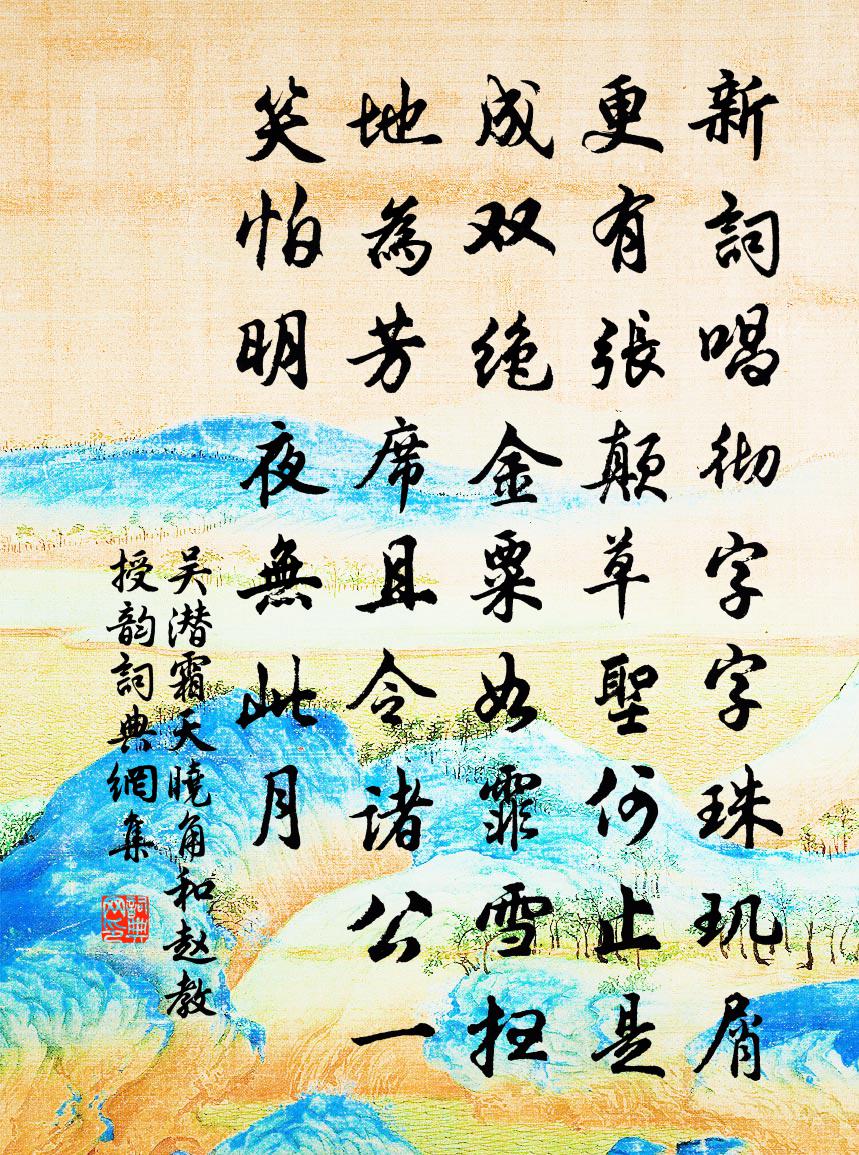 新詞唱彻字字珠玑屑
更有張颠草聖何止是
成双绝金粟如霏雪扫
地為芳席且令诸公一
笑怕明夜無此月
吴潜霜天曉角和赵教
授韵詞典網集